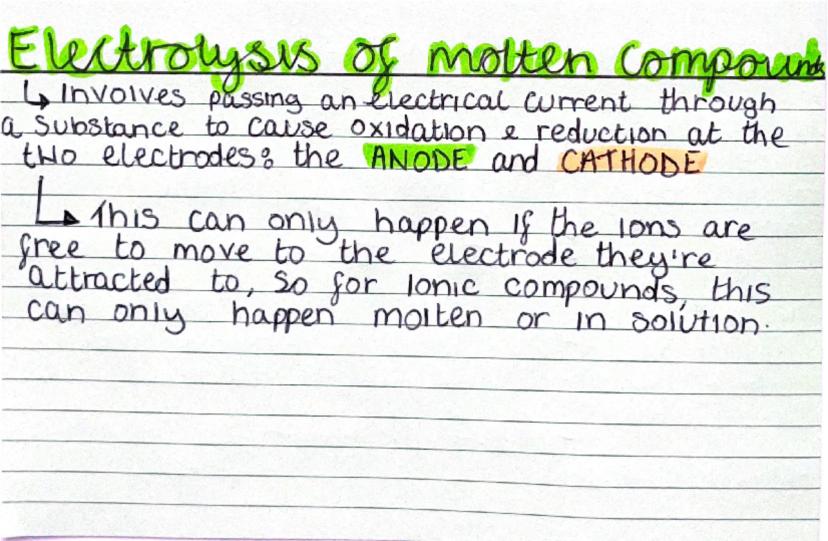 Electrolysis of molten compounds
↳ Involves passing an electrical current through
a substance to cause oxidation & reduction at the
two electrodes: the ANODE and CATHODE
↳ This can only happen if the ions are
free to move to the electrode they're
attracted to, so for ionic compounds, this
can only happen molten or in solution.